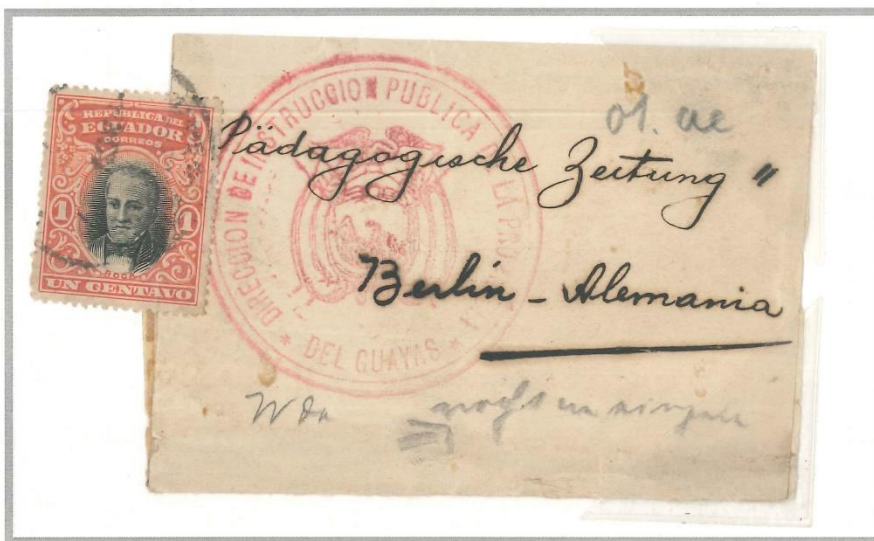 REPUBLICA DEL
ECUADOR
CORREOS
1 1
ROCA
UN CENTAVO
DIRECCION DE INSTRUCCION PUBLICA DE LA
* DEL GUAYAS *
Pädagogische Zeitung "
Berlin - Alemania